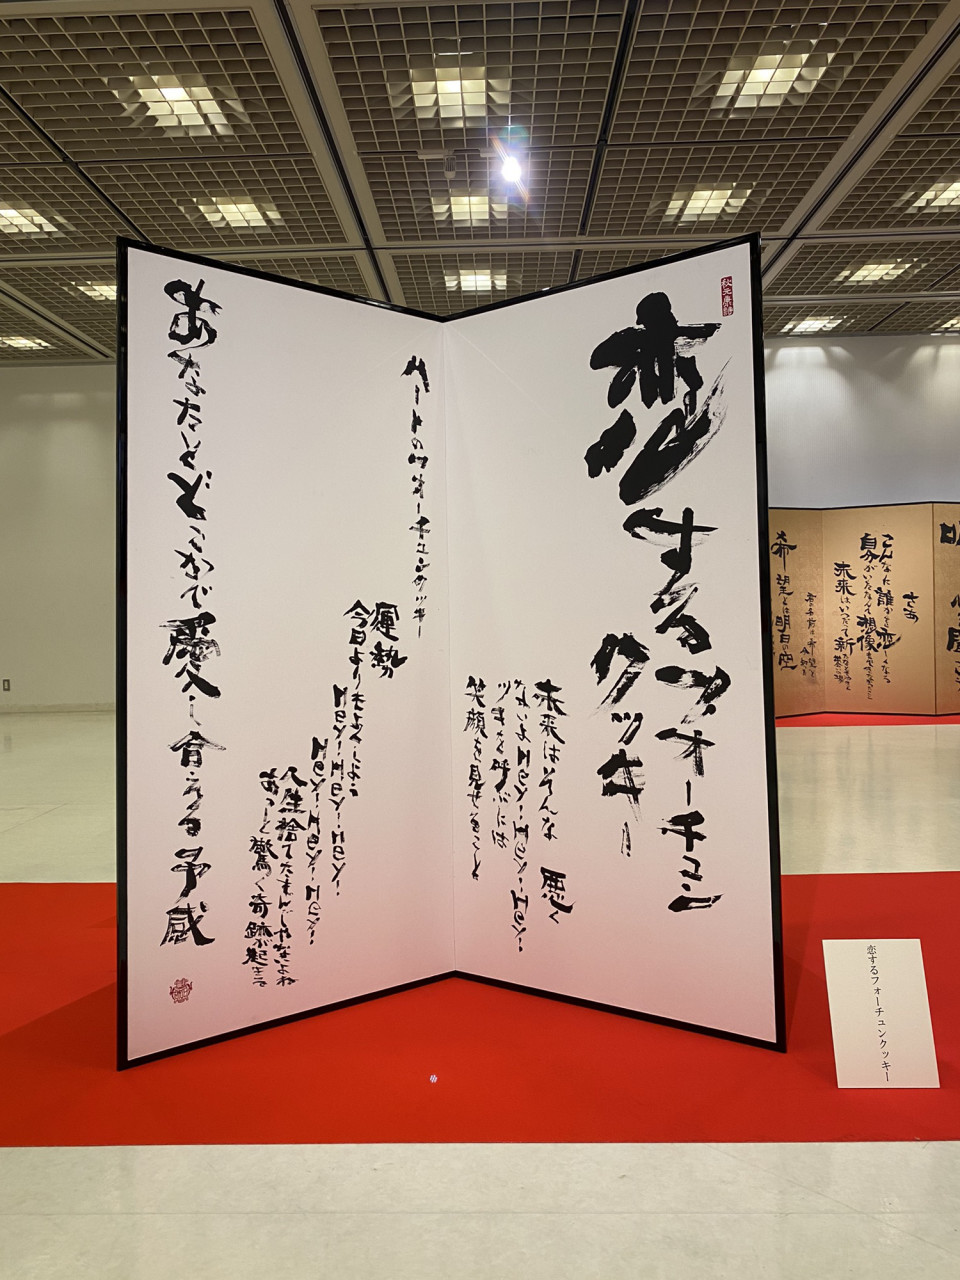 秋元康詩
恋するフォーチュン
クッキー！
未来はそんな 悪く
ないよ Hey! Hey! Hey!
ツキを呼ぶには
笑顔を見せること
ハートのフォーチュンクッキー
運勢
今日よりもよくしよう
Hey! Hey! Hey!
Hey! Hey! Hey!
人生捨てたもんじゃないよね
あっと驚く奇跡が起きる
あなたとどこかで愛し合える予感
恋するフォーチュンクッキー
さあ
こんなに誰かを恋しくなる
自分がいたなんて想像もできなかったこと
未来はいつだって新たな
希望とは明日の空